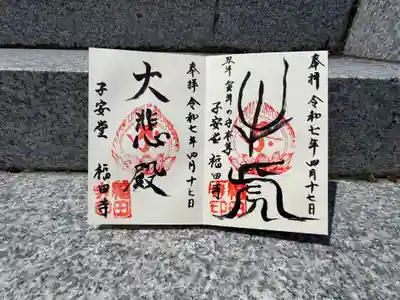 奉拝 令和七年四月十七日
丑年 寅年の守本尊
子安堂 福田寺
奉拝 令和七年四月十七日
大悲殿
子安堂 福田寺